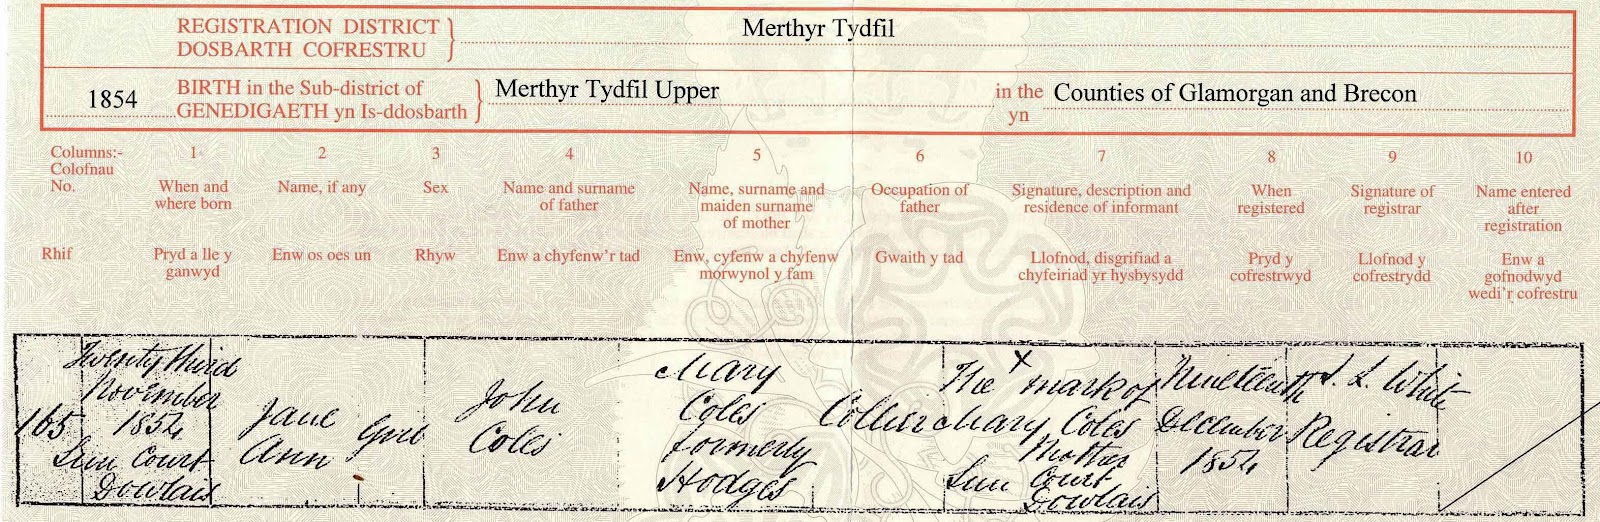 REGISTRATION DISTRICT Merthyr Tydfil
DOSBARTH COFRESTRU
1854 BIRTH in the Sub-district of Merthyr Tydfil Upper in the Counties of Glamorgan and Brecon
GENEDIGAETH yn Is-ddosbarth yn
Columns:- 1 2 3 4 5 6 7 8 9 10
Colofnau
No. When and Name, if any Sex Name and surname Name, surname and Occupation of Signature, description and When Signature of Name entered
where born of father maiden surname father residence of informant registered registrar after
of mother registration
Rhif Pryd a lle y Enw os oes un Rhyw Enw a chyfenw'r tad Enw, cyfenw a chyfenw Gwaith y tad Llofnod, disgrifiad a Pryd y Llofnod y Enw a
ganwyd morwynol y fam chyfeiriad yr hysbysydd cofrestrwyd cofrestrydd gofnodwyd
wedi'r cofrestru
165
Twenty third
November
1854
Sun Court
Dowlais
Jane
Ann
Girl
John
Coles
Mary
Coles
formerly
Hodges
Collier
The X mark of
Mary Coles
Mother
Sun Court
Dowlais
Nineteenth
December
1854
White
Registrar